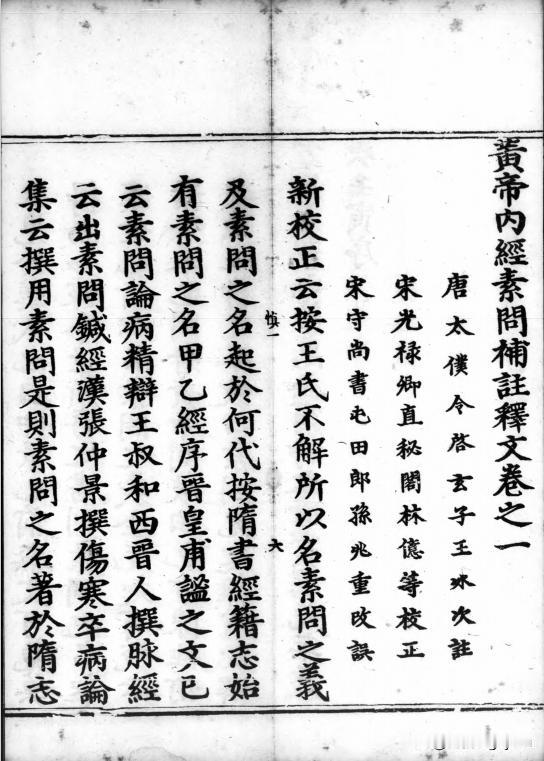 黃帝內經素問補註釋文卷之一
唐太僕令啓玄子王冰次註
宋光祿卿直秘閣林億等校正
宋守尚書屯田郎孫兆重改誤
新校正云按王氏不解所以名素問之義
及素問之名起於何代按隋書經籍志始
慎一
六
有素問之名甲乙經序晉皇甫謐之文已
云素問論病精辯王叔和西晉人撰脉經
云出素問鍼經漢張仲景撰傷寒卒病論
集云撰用素問是則素問之名著於隋志